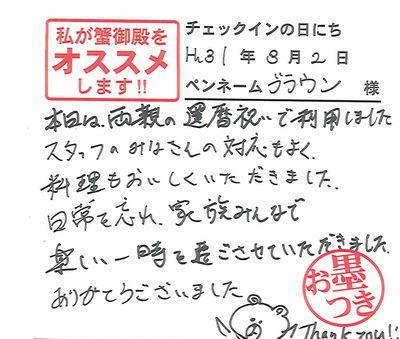 私が蟹御殿を
オススメ
します!!
チェックインの日にち
H31年8月2日
ペンネーム ブラウン 様
本日は、両親の還暦祝いで利用しました
スタッフのみなさんの対応もよく、
料理もおいしくいただきました。
日常を忘れ、家族みんなで
楽しい一時を過ごさせていただきました。
ありがとうございました
お墨つき
Thank You!!